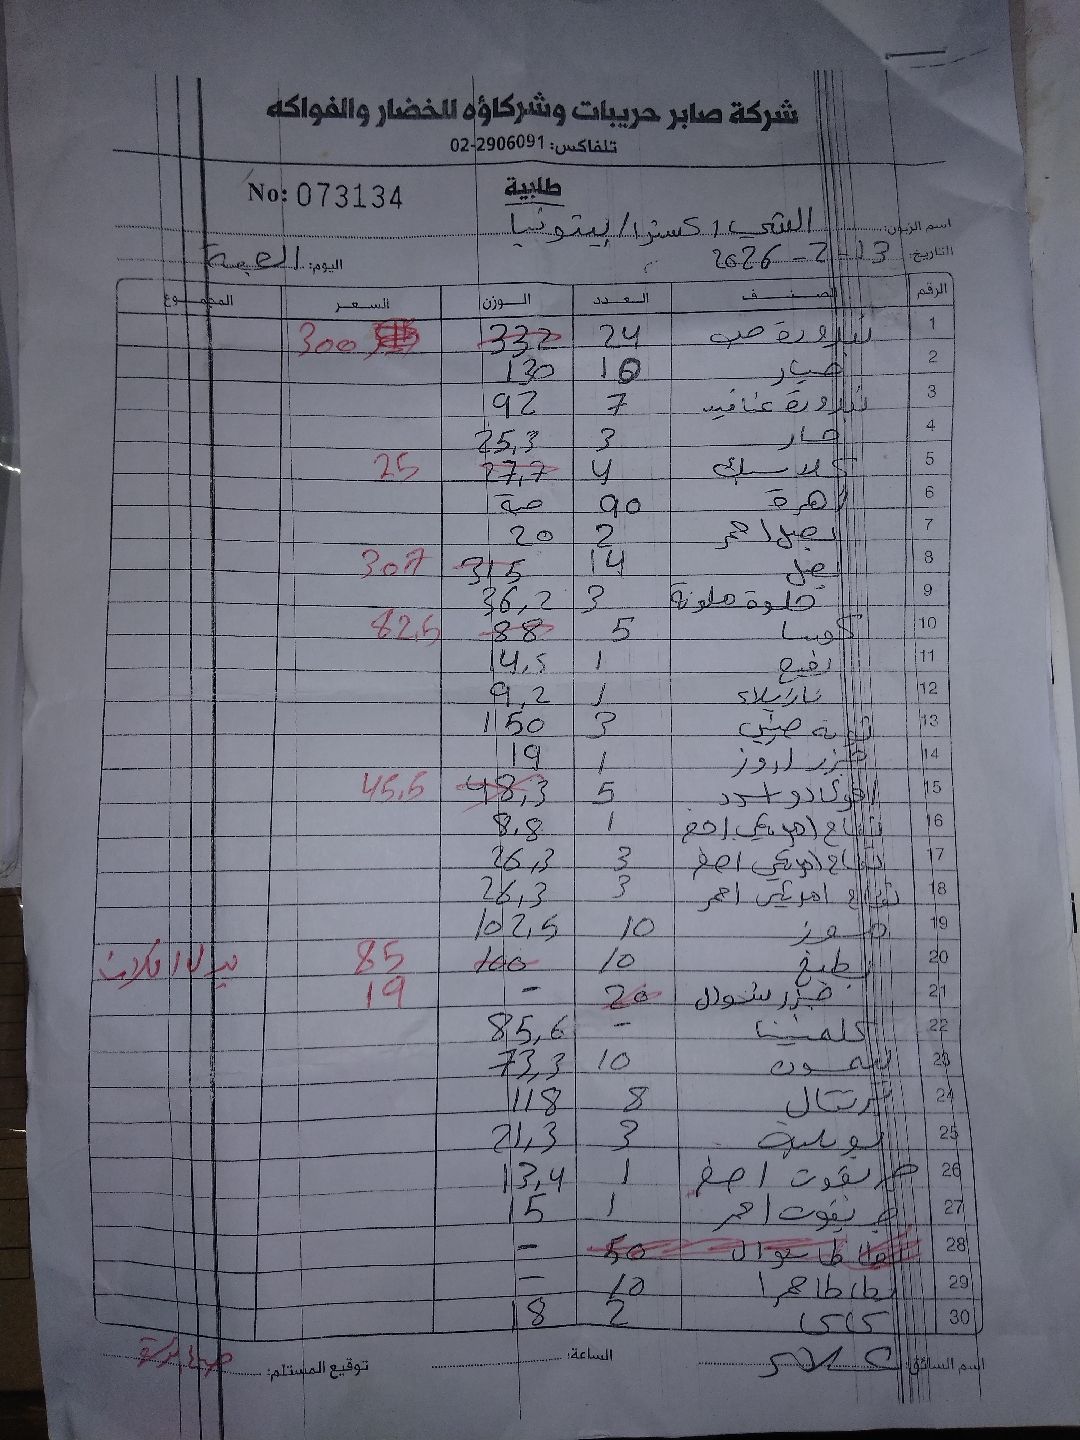 شركة صابر حريبات وشركاؤه للخضار والفواكه
تلفاكس: 02-2906091
No: 073134
طلبية
اسم الزبون: الشني اكسترا/بيتونيا
التاريخ: 13-2-2026
اليوم: الجمعة
الرقم الصنف العدد الوزن السعر المجموع
1 بندورة حب 24 332 300
2 خيار 10 130
3 بندورة عناقيد 7 92
4 حار 3 25,3
5 كلاسيك 4 27,7 25
6 زهرة 90 حبة
7 بصل احمر 2 20
8 بصل 14 315 307
9 حلوة ملونة 3 36,2
10 كوسا 5 88 82,5
11 رفيع 1 14,5
12 1 9,2
13 3 150
14 جزر اروز 1 19
15 افوكادو اسود 5 48,3 45,5
16 تفاح امريكي اخضر 1 8,8
17 تفاح امريكي اصفر 3 26,3
18 تفاح امريكي احمر 3 26,3
19 موز 10 102,5
20 بطيخ 10 100 85
21 جزر شوال 20 - 19
22 كلمنتينا - 85,6
23 ليمون 10 73,3
24 برتقال 8 118
25 بوملية 3 21,3
26 جريبفوت اصفر 1 13,4
27 جريبفوت احمر 1 15
28 بطاطا شوال 50 -
29 بطاطا حمرا 10 -
30 كاكا 2 18
اسم السائق:
الساعة:
توقيع المستلم: